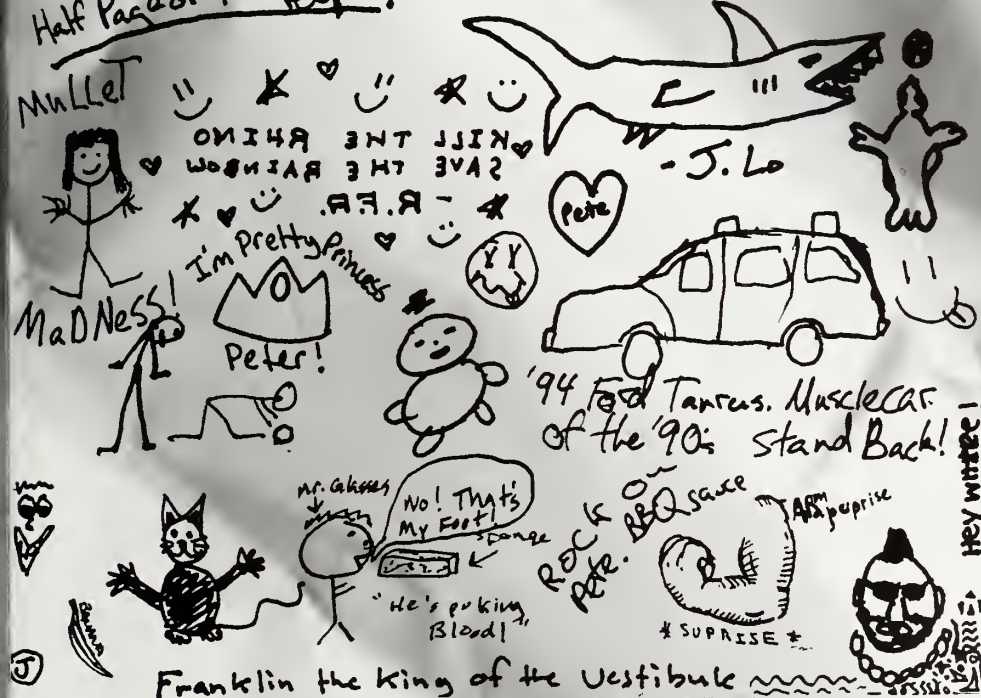 Half Page
MULLET
MADNESS!
KILL THE RHINO
SAVE THE RAINBOW
- R.F.R.
I'm Pretty Princess
Peter!
- J. Lo
Pete
'94 Ford Taurus. Musclecar
of the '90s Stand Back!
Hey whitee!
Mr. Glasses
No! That's
My Foot!
sponge
"He's puking
Blood!"
ROCK
Pete.
BBQ sauce
Arm
* SUPRISE *
Banana
J
Franklin the King of the Vestibule